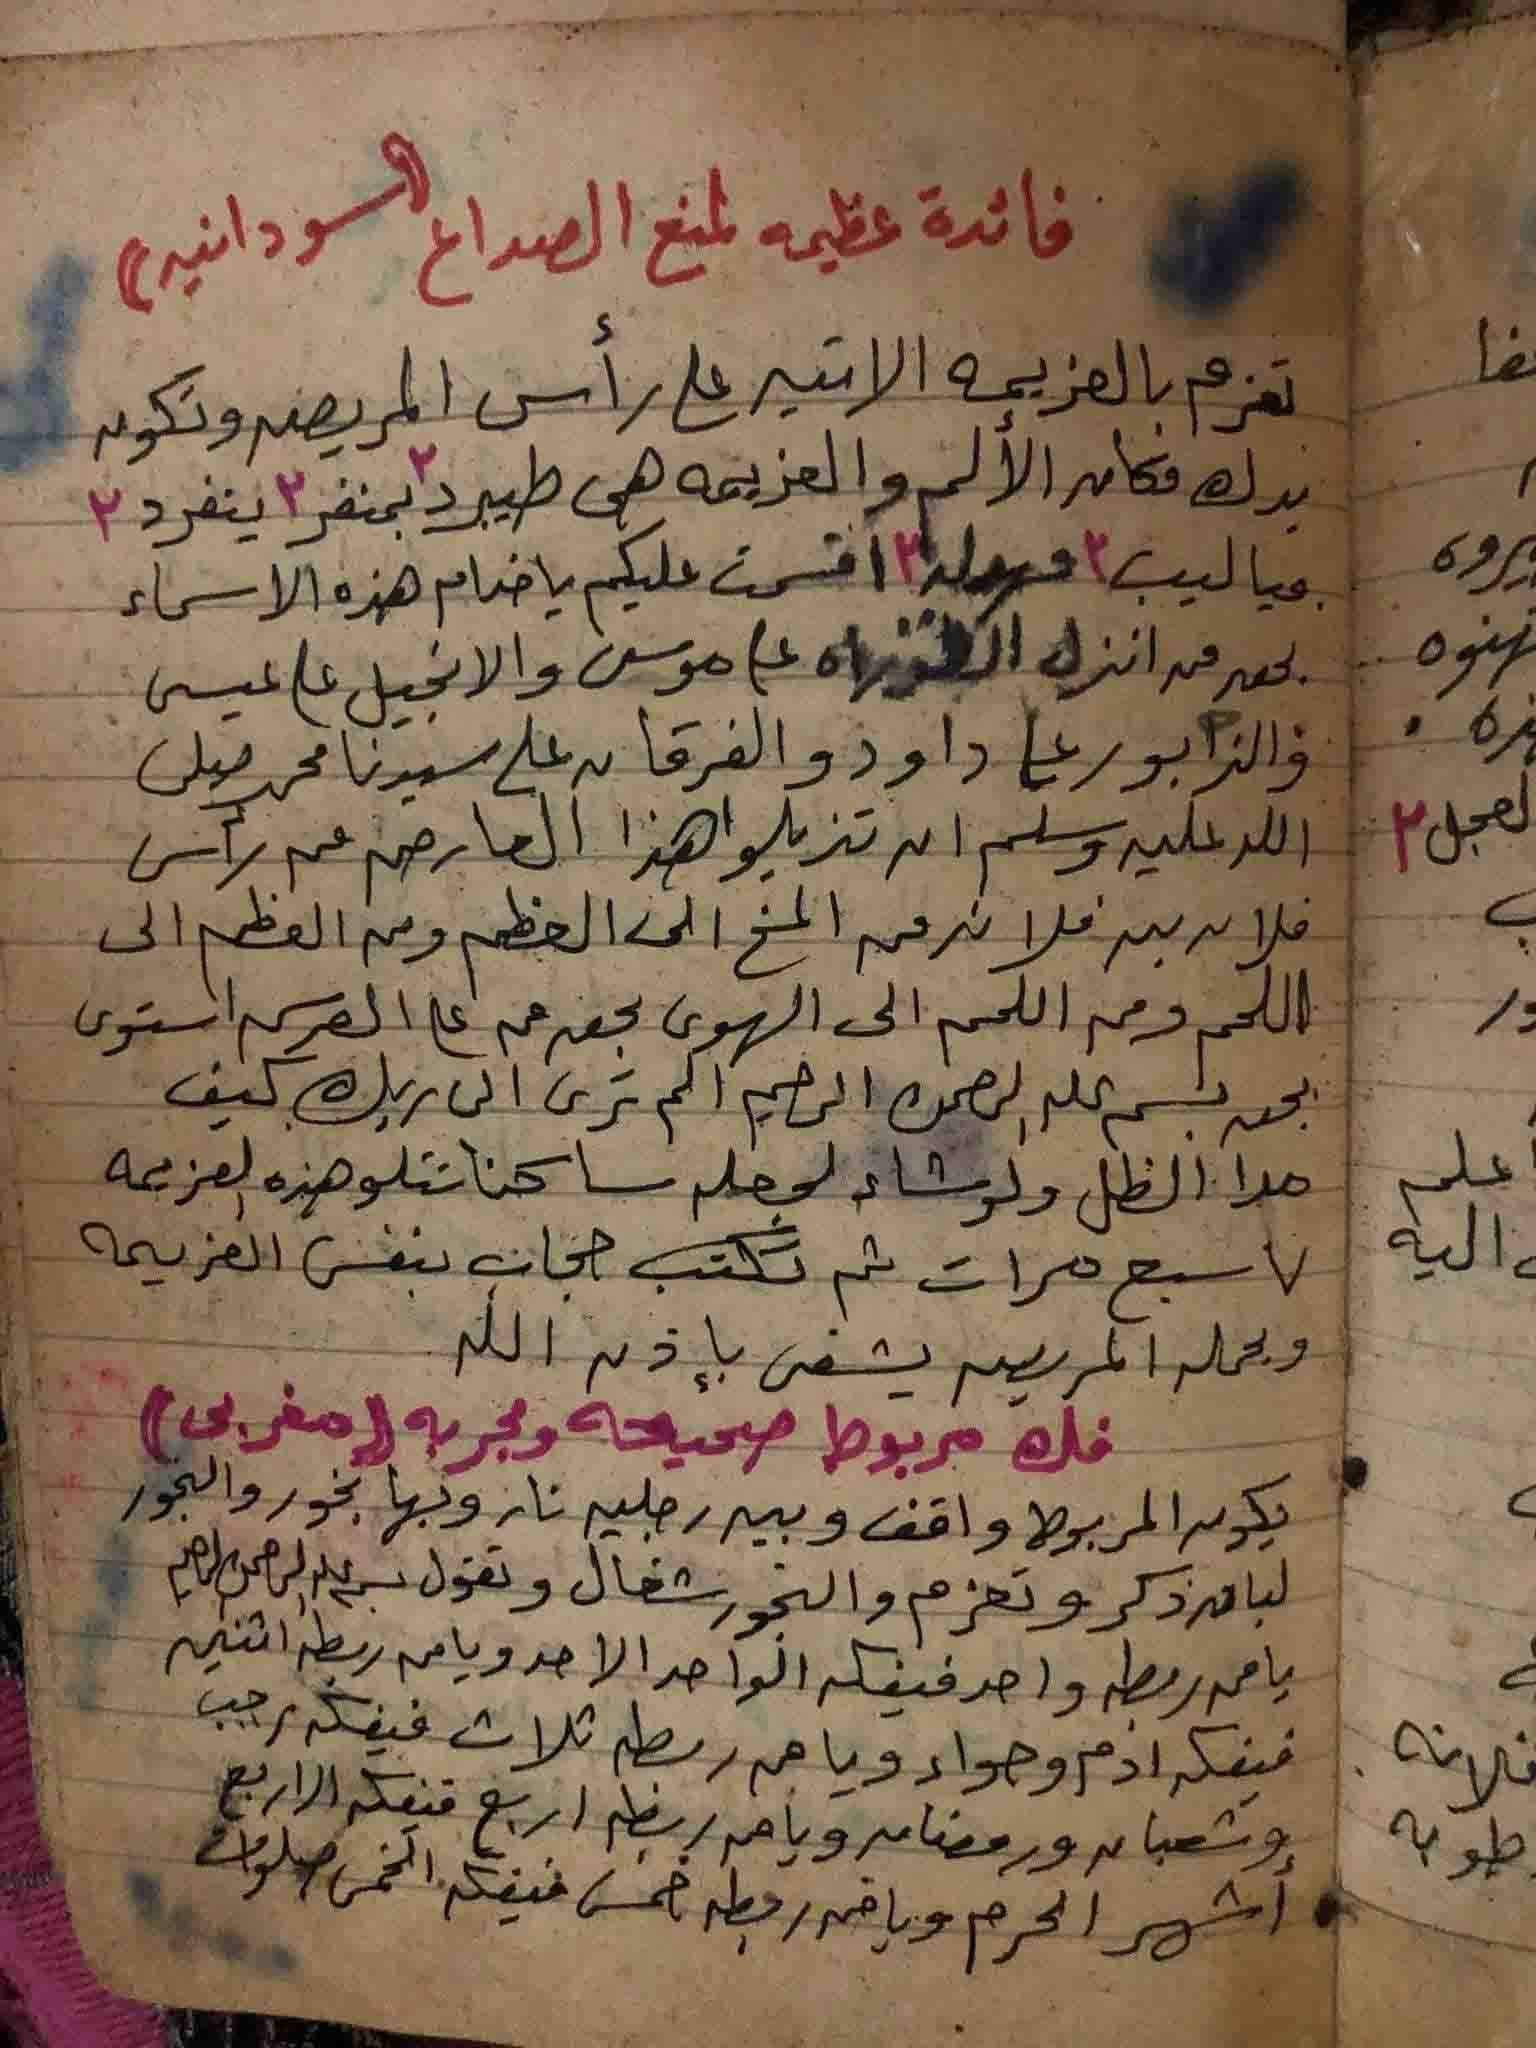 فائدة عظيمه لمنع الصداع ((سودانيه))
تعزم بالعزيمه الاتيه على رأس المريض وتكون
يدك مكان الألم والعزيمه هى طيبرد ٢ بمنفر ٢ ينفرد ٢
مياليب ٢ ٢ اقسمت عليكم يا خدام هذه الاسماء
بحق من انزل على موسى والانجيل على عيسى
والزابور على داود والفرقان على سيدنا محمد صلى
الله عليه وسلم ان تزيلوا هذا العارض من رأس
فلان بن فلانه من المخ الى العظم ومن العظم الى
اللحم ومن اللحم الى الهوى بحق من على العرش استوى
بحق بسم الله الرحمن الرحيم الم ترى الى ربك كيف
مدا الظل ولو شاء لجعله ساكنا تتلو هذه العزيمه
٧ سبع مرات ثم تكتب حجاب بنفس العزيمه
ويحمله المريض يشفى بإذن الله
فك مربوط صحيحه ومجربه ((مغربى))
يكون المربوط واقف وبين رجليه نار وبها بخور والبخور
لبان ذكر وتعزم والبخور شغال وتقول بسم الله الرحمن الرحيم
يا من ربطه واحد فيفكه الواحد الاحد ويا من ربطه اثنين
فيفكه ادم وحواء ويا من ربطه ثلاث فيفكه رجب
وشعبان ورمضان ويا من ربطه اربع فيفكه الاربع
أشهر الحرم ويا من ربطه خمس فيفكه الخمس صلوات
العجل ٢
أعلم
اليه
فلانه